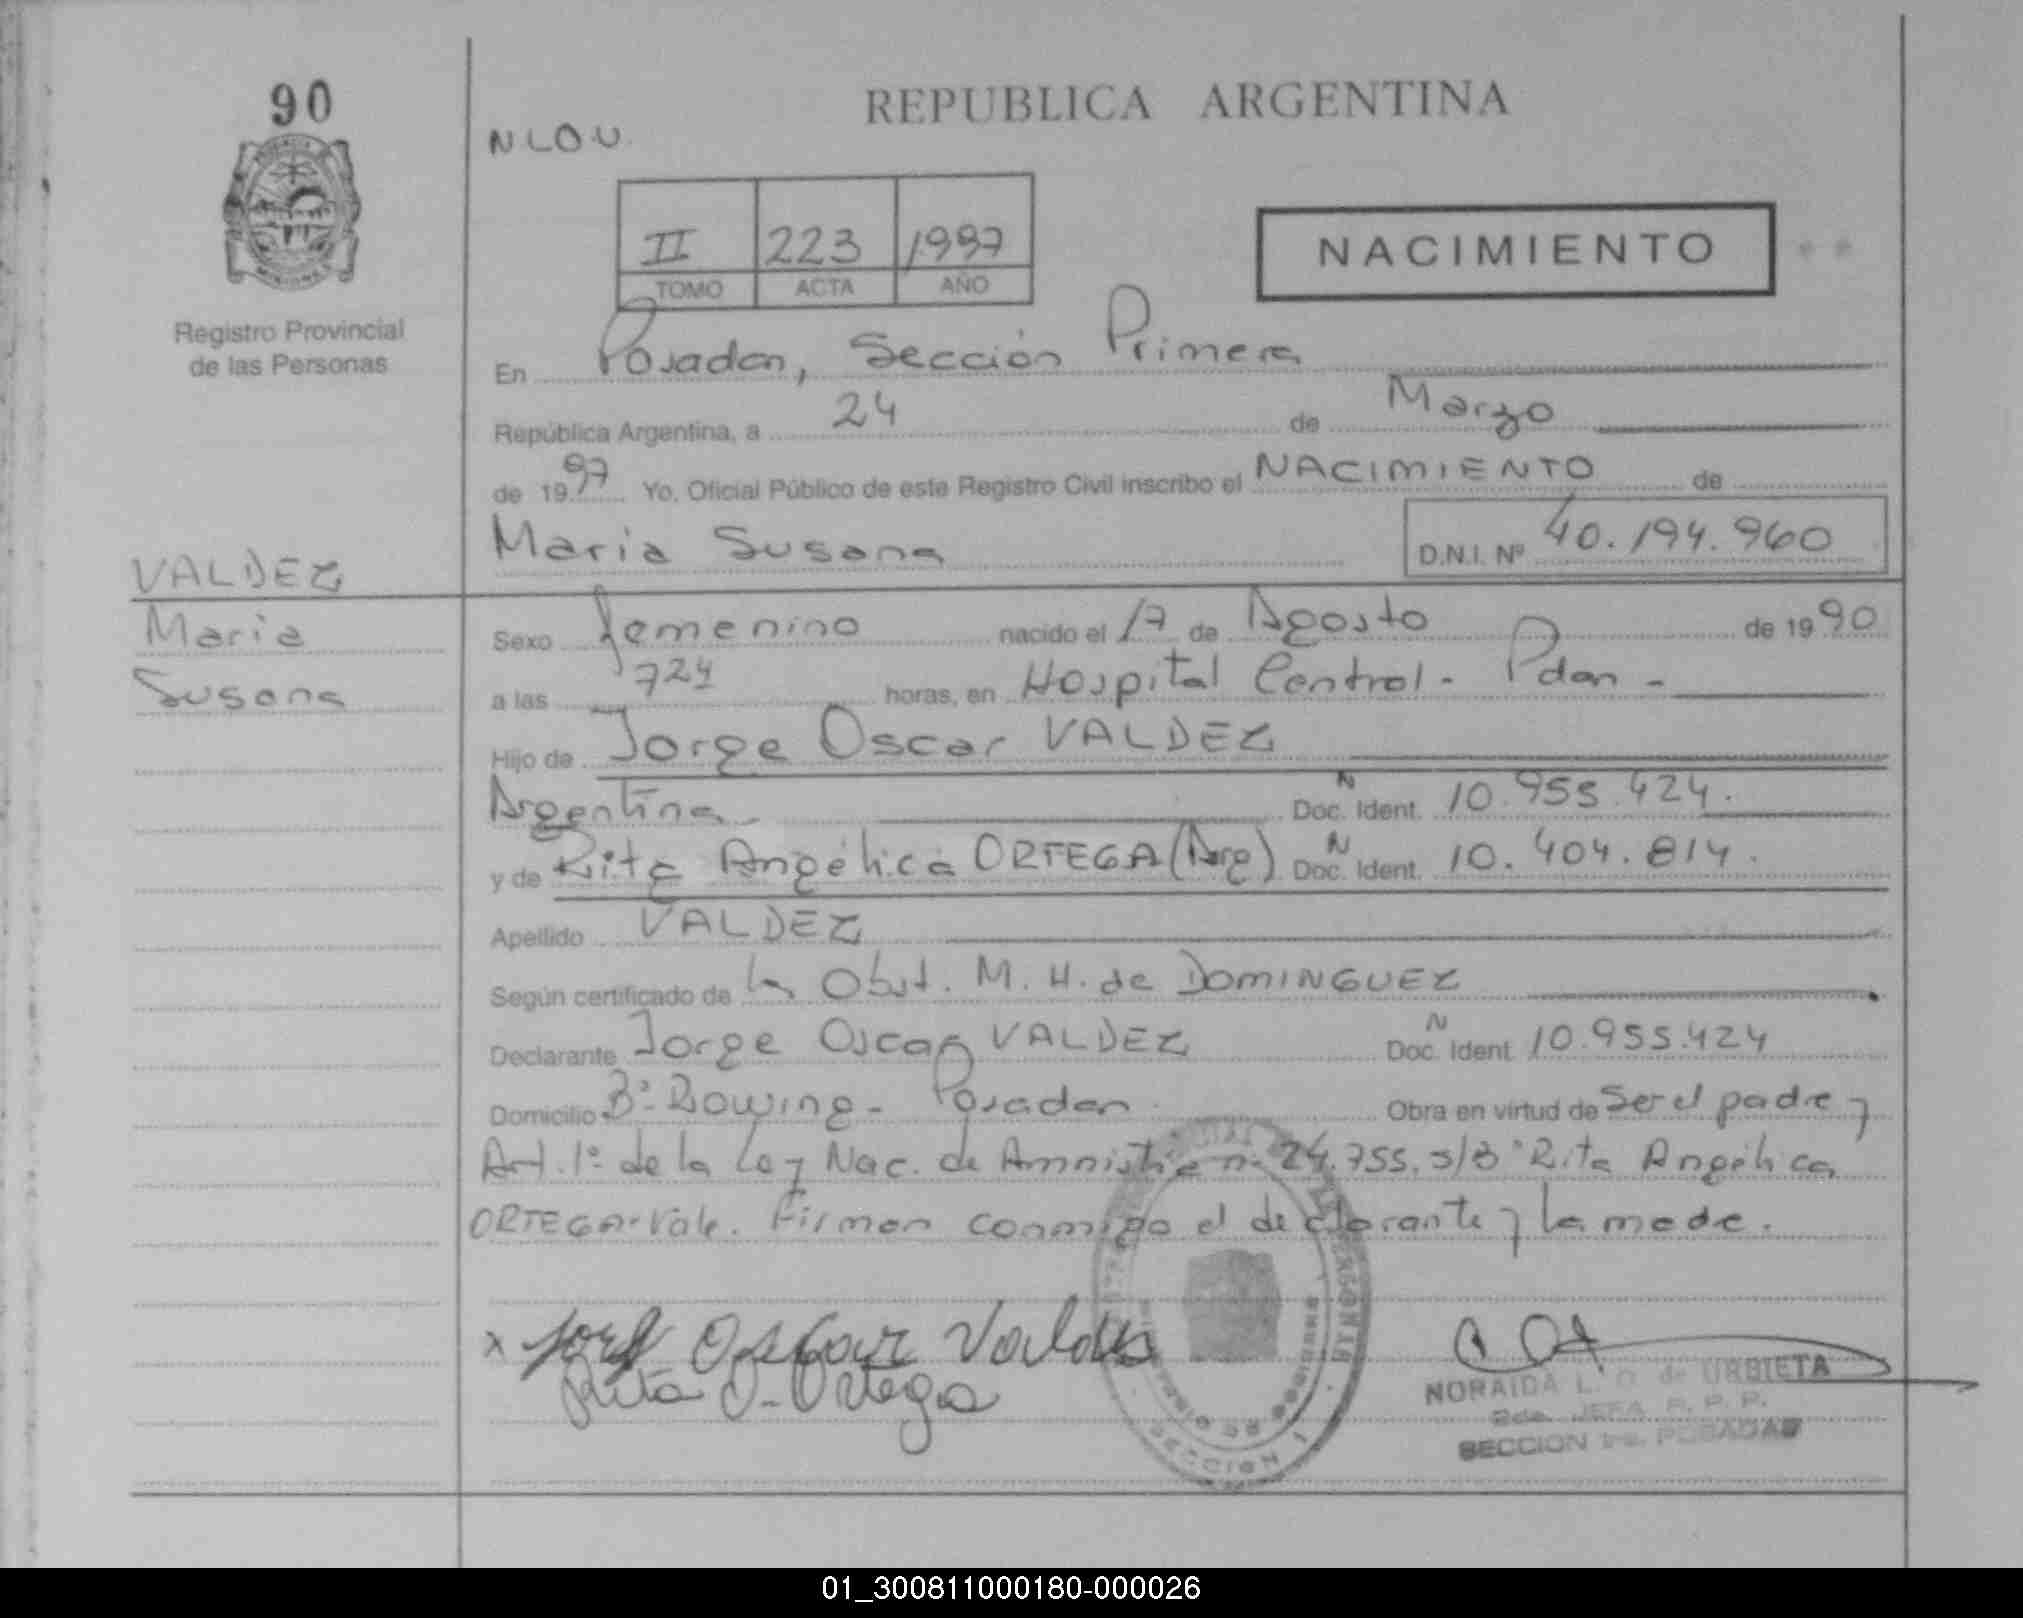 90
REPUBLICA ARGENTINA
NLOU.
II 223 1997
TOMO ACTA AÑO
NACIMIENTO
Registro Provincial
de las Personas
En Posadas, Sección Primera
República Argentina, a 24 de Marzo
de 1997 Yo, Oficial Público de este Registro Civil inscribo el NACIMIENTO de
Maria Susana D.N.I. Nº 40.194.960
VALDEZ
Maria
Susana
Sexo femenino nacido el 17 de Agosto de 1990
a las 724 horas, en Hospital Central - Pdas -
Hijo de Jorge Oscar VALDEZ
Argentina Doc. Ident. N 10.955.424.
y de Rita Angélica ORTEGA (Arg) Doc. Ident. N 10.404.814.
Apellido VALDEZ
Según certificado de la Obst. M. H. de DOMINGUEZ
Declarante Jorge Oscar VALDEZ Doc. Ident. N 10.955.424
Domicilio Bº Rowing - Posadas Obra en virtud de ser el padre y
Art. 1º de la Ley Nac. de Amnistía nº 24.755. s/B "Rita Angélica
ORTEGA-Vale. Firman conmigo el declarante y la madre.
x Jorge Oscar Valdes
Rita Ortega
SECCION I
NORAIDA L. O. de URBIETA
2da. JEFA R. P. P.
SECCION 1ra. POSADAS
01_300811000180-000026